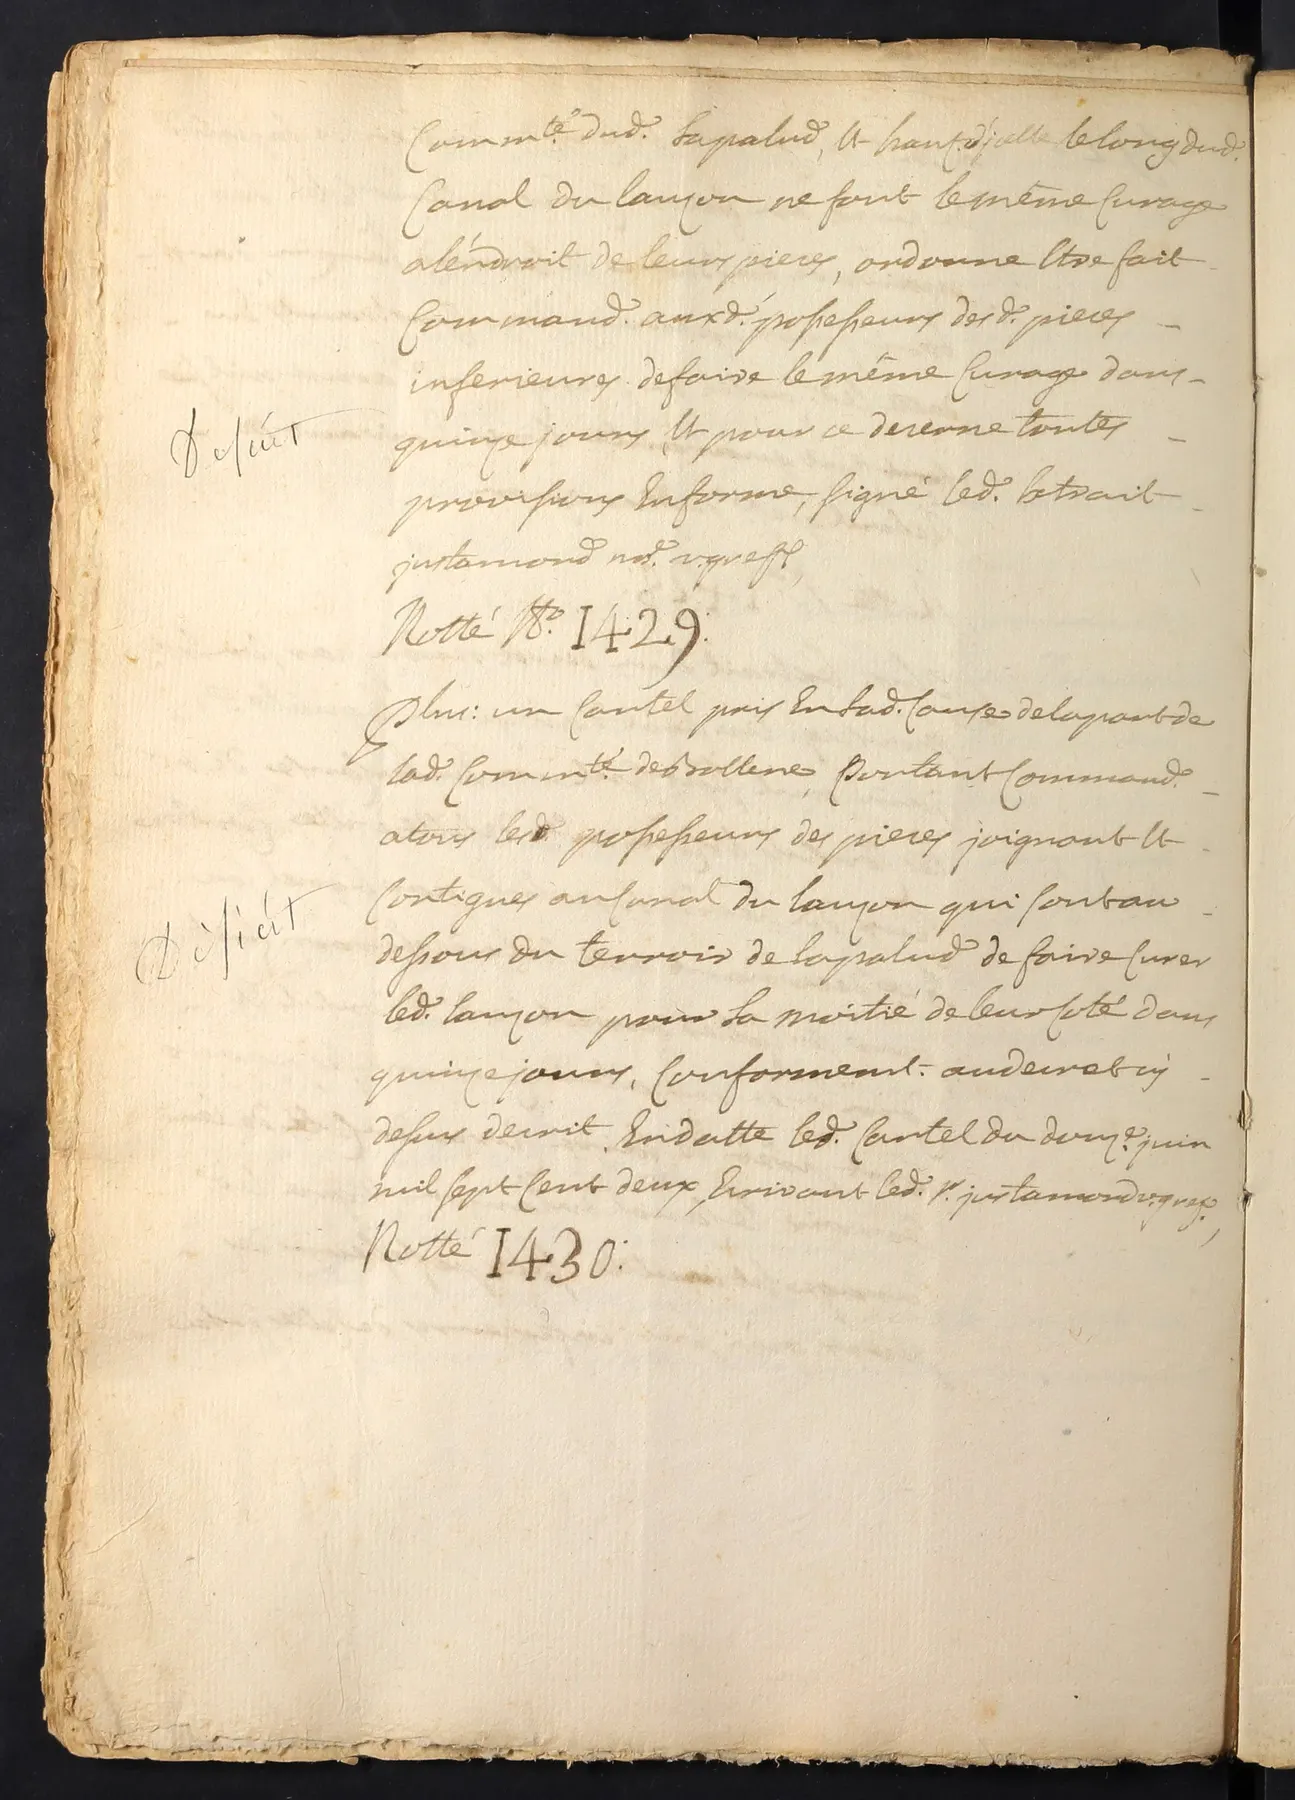 Comm.té dud. Lapalud, Et le long dud.
Canal du lauzon ne font le même Curage
alendroit de leurs pieces, ordonne Etre fait
Command. auxd. possesseurs desd. pieces
inferieures de faire le même Curage dans
quinze jours, Et pour ce decerne toutes
provisions Enforme, signé led. Extrait
justamond no.re v. greff.
Déficit
Notté N.o 1429:
Plus: un Cartel pris En lad. Cause de la part de
lad. Comm.té de Bollene, Portant Command.
a tous lesd. possesseurs des pieces joignant Et
Contigues au Canal du lauzon qui sont au
dessous du terroir de lapalud de faire Curer
led. lauzon pour la moitié de leur Coté dans
quinze jours, Conformemt. au decret cy
dessus decrit, En datte led. Cartel du douz.e juin
mil sept Cent deux, Ecrivant led. s.r justamond v. greff.,
Déficit
Notté 1430: